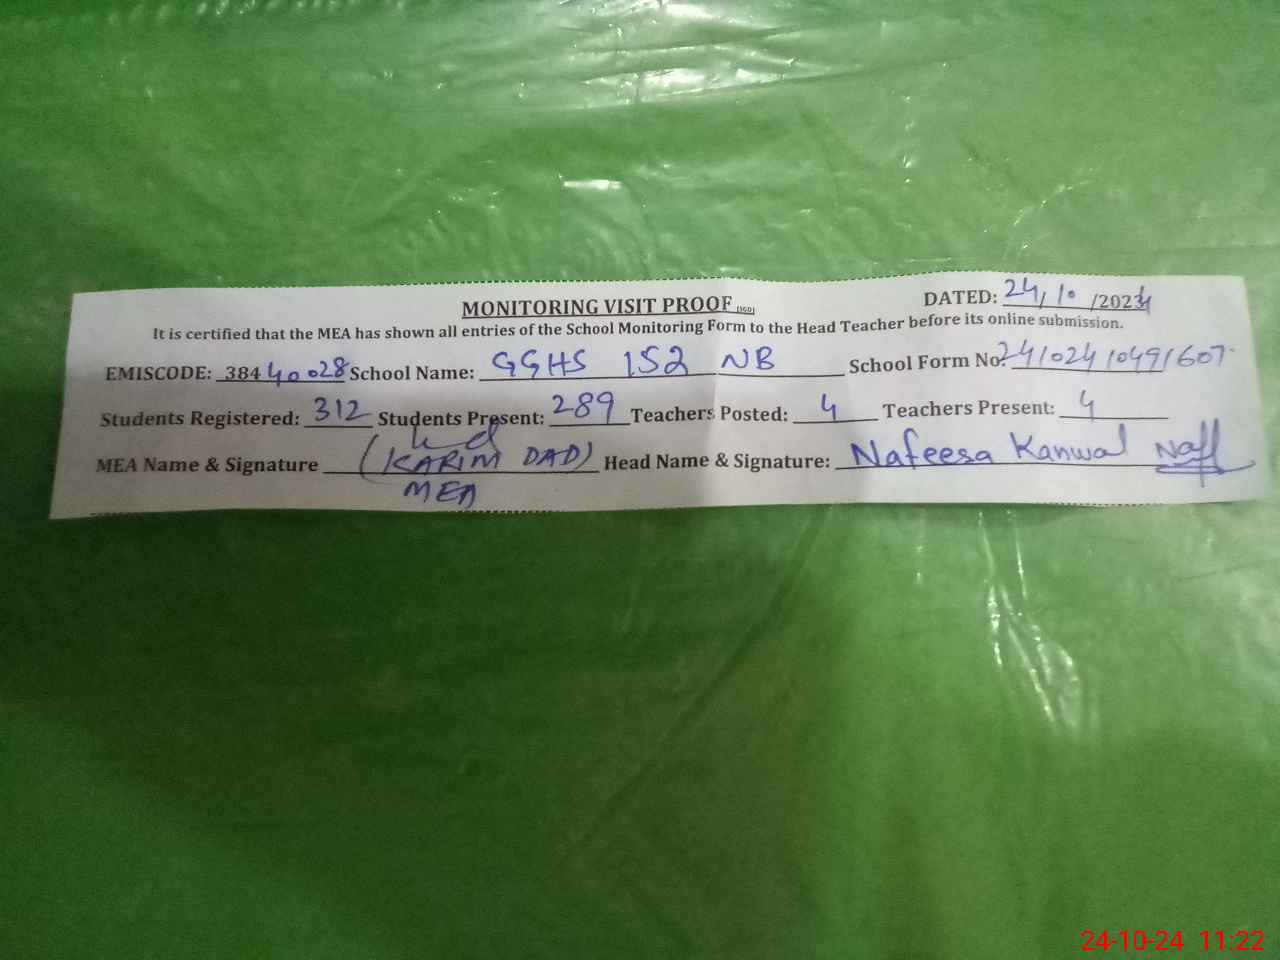 MONITORING VISIT PROOF (SGD) DATED: 24/10/2024
It is certified that the MEA has shown all entries of the School Monitoring Form to the Head Teacher before its online submission.
EMISCODE: 38440028 School Name: GGHS 152 NB School Form No: 241024/0491607
Students Registered: 312 Students Present: 289 Teachers Posted: 4 Teachers Present: 4
MEA Name & Signature (KARIM DAD) Head Name & Signature: Nafeesa Kanwal Naff
MEA
24-10-24 11:22